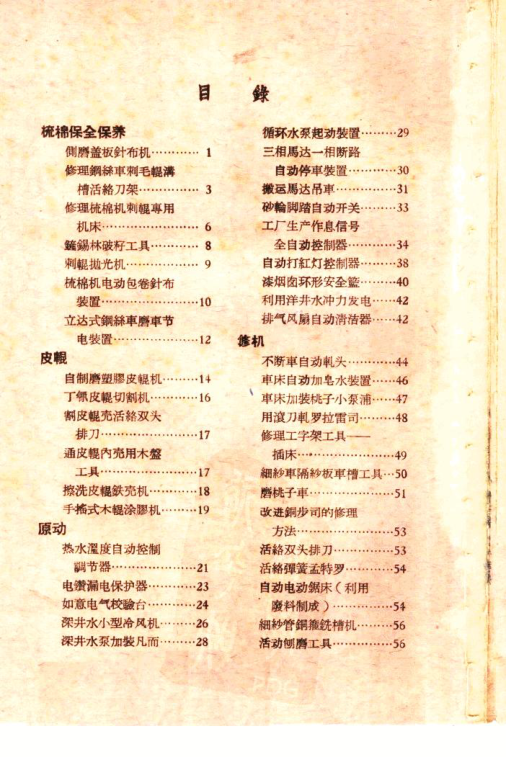 目 錄
梳棉保全保养
側磨盖板針布机………… 1
修理鋼絲車刺毛輥溝
槽活絡刀架………… 3
修理梳棉机刺輥專用
机床………… 6
錫林破籽工具………… 8
刺輥抛光机………… 9
梳棉机电动包卷針布
装置…………10
立达式鋼絲車磨車节
电装置…………12
皮輥
自制磨塑膠皮輥机………14
丁腈皮輥切割机…………16
割皮輥壳活絡双头
排刀…………17
通皮輥內壳用木盤
工具…………17
擦洗皮輥鉄壳机…………18
手搖式木輥涂膠机………19
原动
热水溫度自动控制
調节器…………21
电鑽漏电保护器…………23
如意电气校驗台…………24
深井水小型冷风机………26
深井水泵加裝凡而………28
循环水泵起动裝置………29
三相馬达一相断路
自动停車裝置…………30
搬运馬达吊車…………31
砂輪脚踏自动开关………33
工厂生产作息信号
全自动控制器…………34
自动打紅灯控制器………38
漆烟囱环形安全籃………40
利用洋井水冲力发电……42
排气风扇自动清洁器……42
修机
不断車自动軋头…………44
車床自动加皂水裝置……46
車床加裝桃子小泵浦……47
用滾刀軋罗拉雷司………48
修理工字架工具——
插床…………49
細紗車隔紗板車槽工具…50
磨桃子車…………51
改进銅步司的修理
方法…………53
活絡双头排刀…………53
活絡彈簧孟特罗…………54
自动电动鋸床（利用
廢料制成）…………54
細紗管鋼箍銑槽机………56
活动刨磨工具…………56